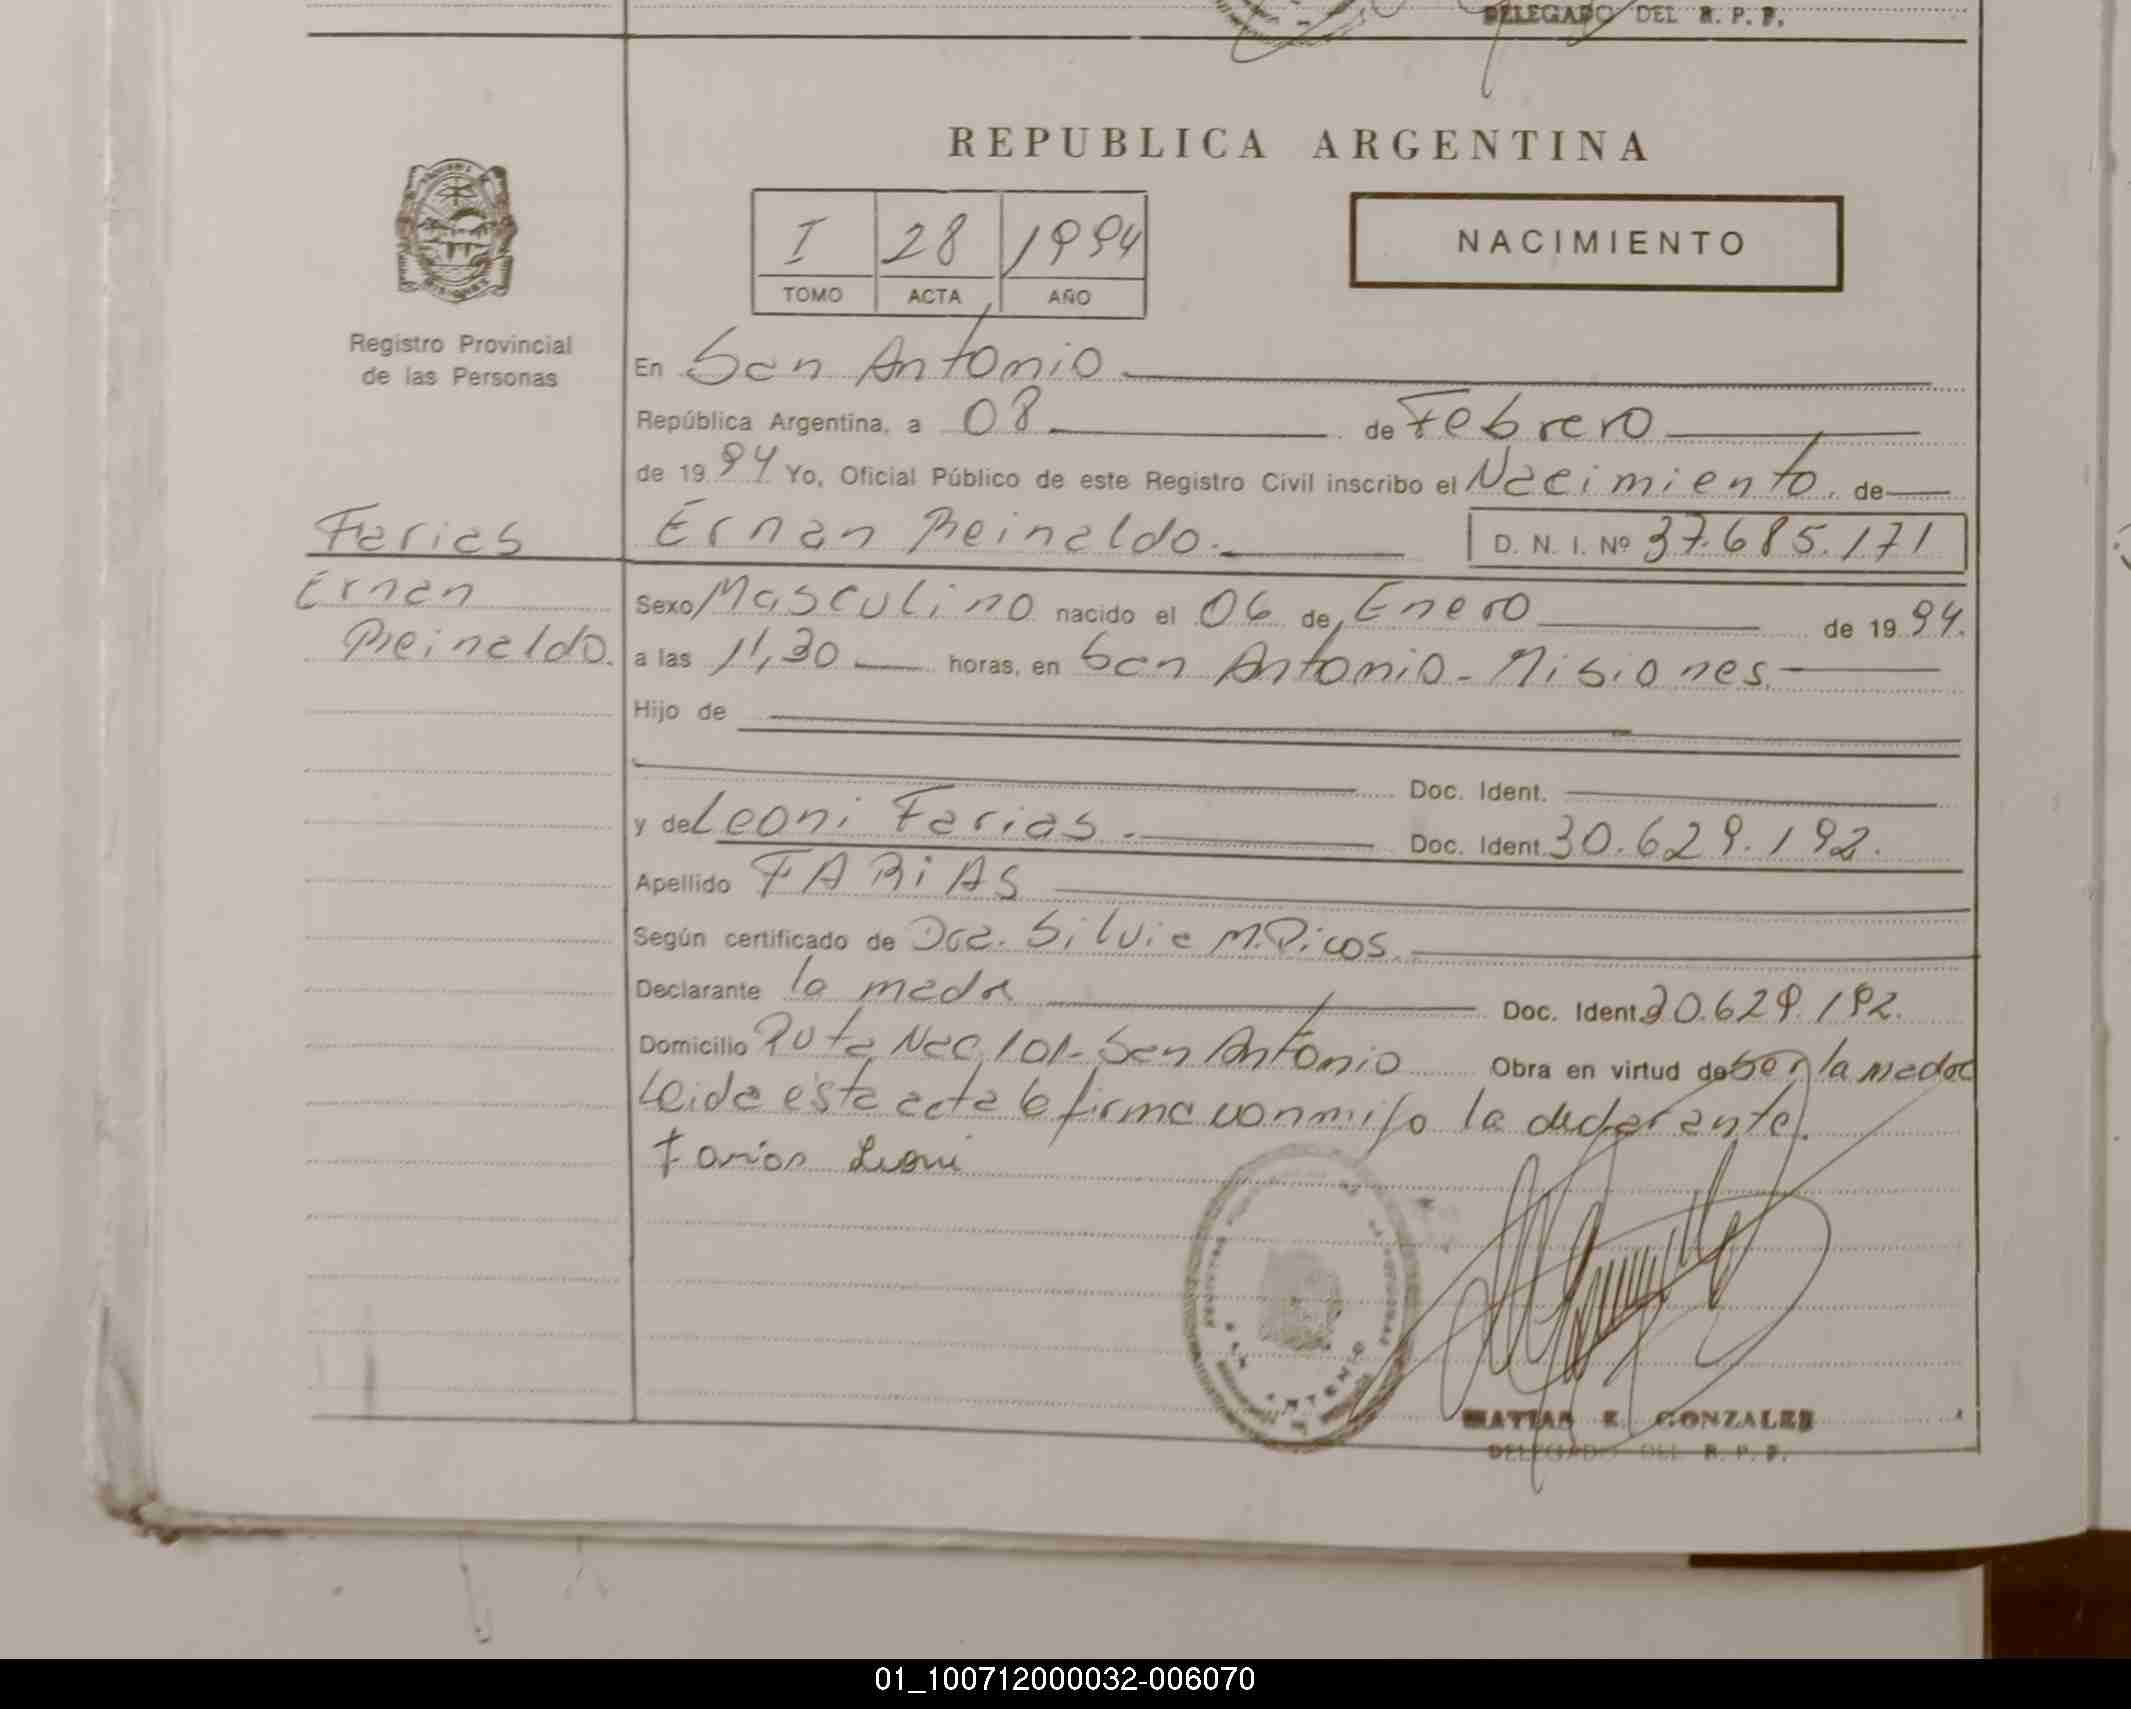 DELEGADO DEL R. P. P.
REPUBLICA ARGENTINA
I 28 1994
TOMO ACTA AÑO
NACIMIENTO
Registro Provincial
de las Personas
En San Antonio
República Argentina, a 08 de Febrero
de 1994 Yo, Oficial Público de este Registro Civil inscribo el Nacimiento de
Farias
Ernan Reinaldo. D. N. I. Nº 37.685.171
Ernan
Reinaldo.
Sexo Masculino nacido el 06 de Enero de 1994.
a las 11,30 horas, en San Antonio - Misiones.
Hijo de
Doc. Ident.
y de Leoni Farias. Doc. Ident. 30.629.192.
Apellido FARiAS
Según certificado de Dra. Silvia M. Picos.
Declarante la madre Doc. Ident. 30.629.192.
Domicilio Ruta Nac. 101 - San Antonio Obra en virtud de ser la madre
Leida este acta la firma conmigo la declarante.
Farias Leoni
SAN ANTONIO
MATIAS E. GONZALEZ
DELEGADO DEL R. P. P.
01_100712000032-006070